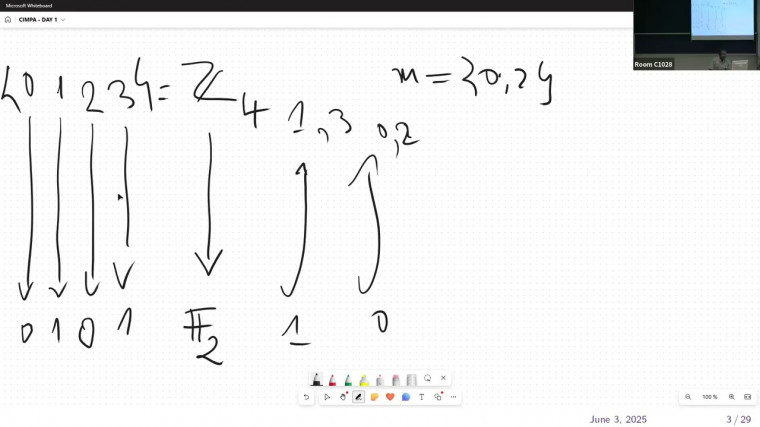 Microsoft Whiteboard
CIMPA - DAY 1
Room C1028
{0 1 2 3} = ℤ₄
m = {0,2}
1,3 0,2
0 1 0 1 𝔽₂ 1 0
T
100 %
June 3, 2025
3 / 29